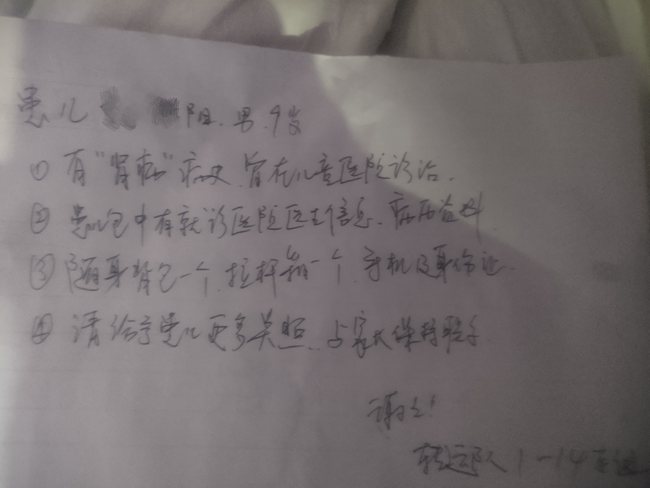 患儿 阳.男.9岁
① 有"肾病"病史.曾在儿童医院诊治.
② 患儿包中有就诊医院医生信息.病历资料.
③ 随身背包一个.拉杆箱一个.手机及身份证.
④ 请给予患儿更多关照.与家长保持联系.
谢谢!
转运队 1-14